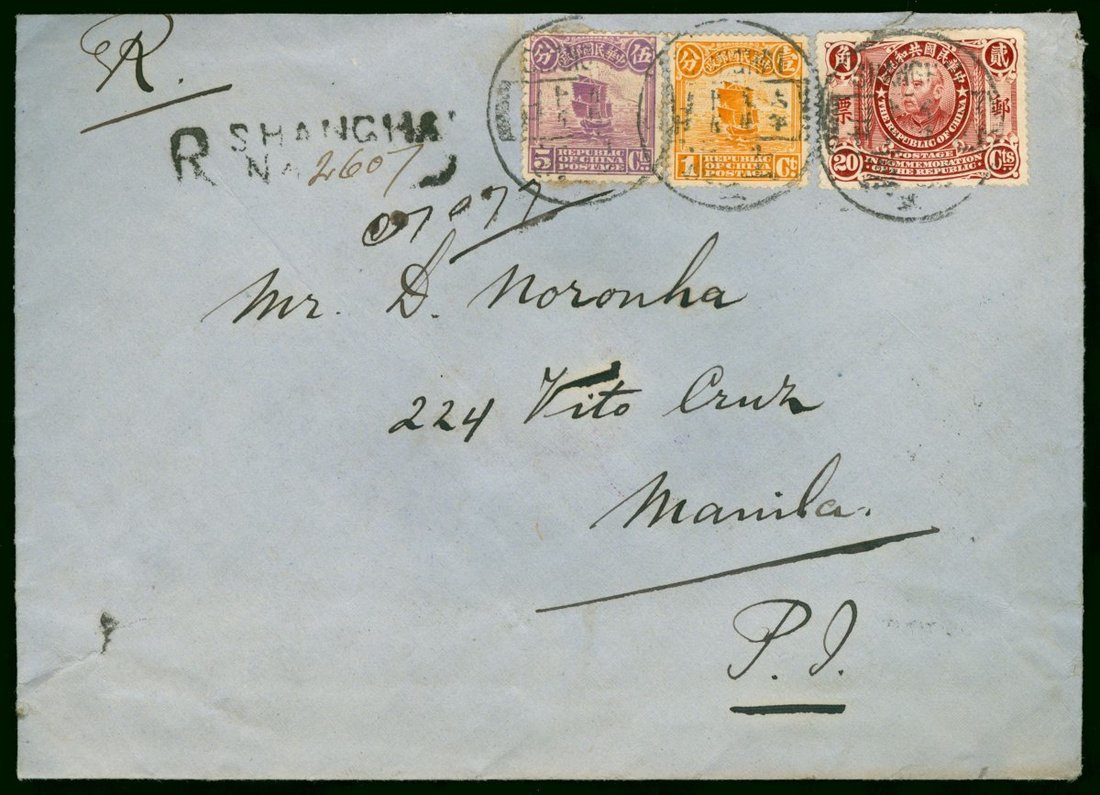 R.
R SHANGHAI
No 2607
07077
伍 中華民國郵政 分
5 REPUBLIC OF CHINA POSTAGE Cts
壹 中華民國郵政 分
1 REPUBLIC OF CHINA POSTAGE Ct.
貳 中華民國共和紀念 角
郵 票
THE REPUBLIC OF CHINA
POSTAGE
20 IN COMMEMORATION OF THE REPUBLIC Cts
Mr. D. Noronha
224 Vito Cruz
Manila.
P.I.